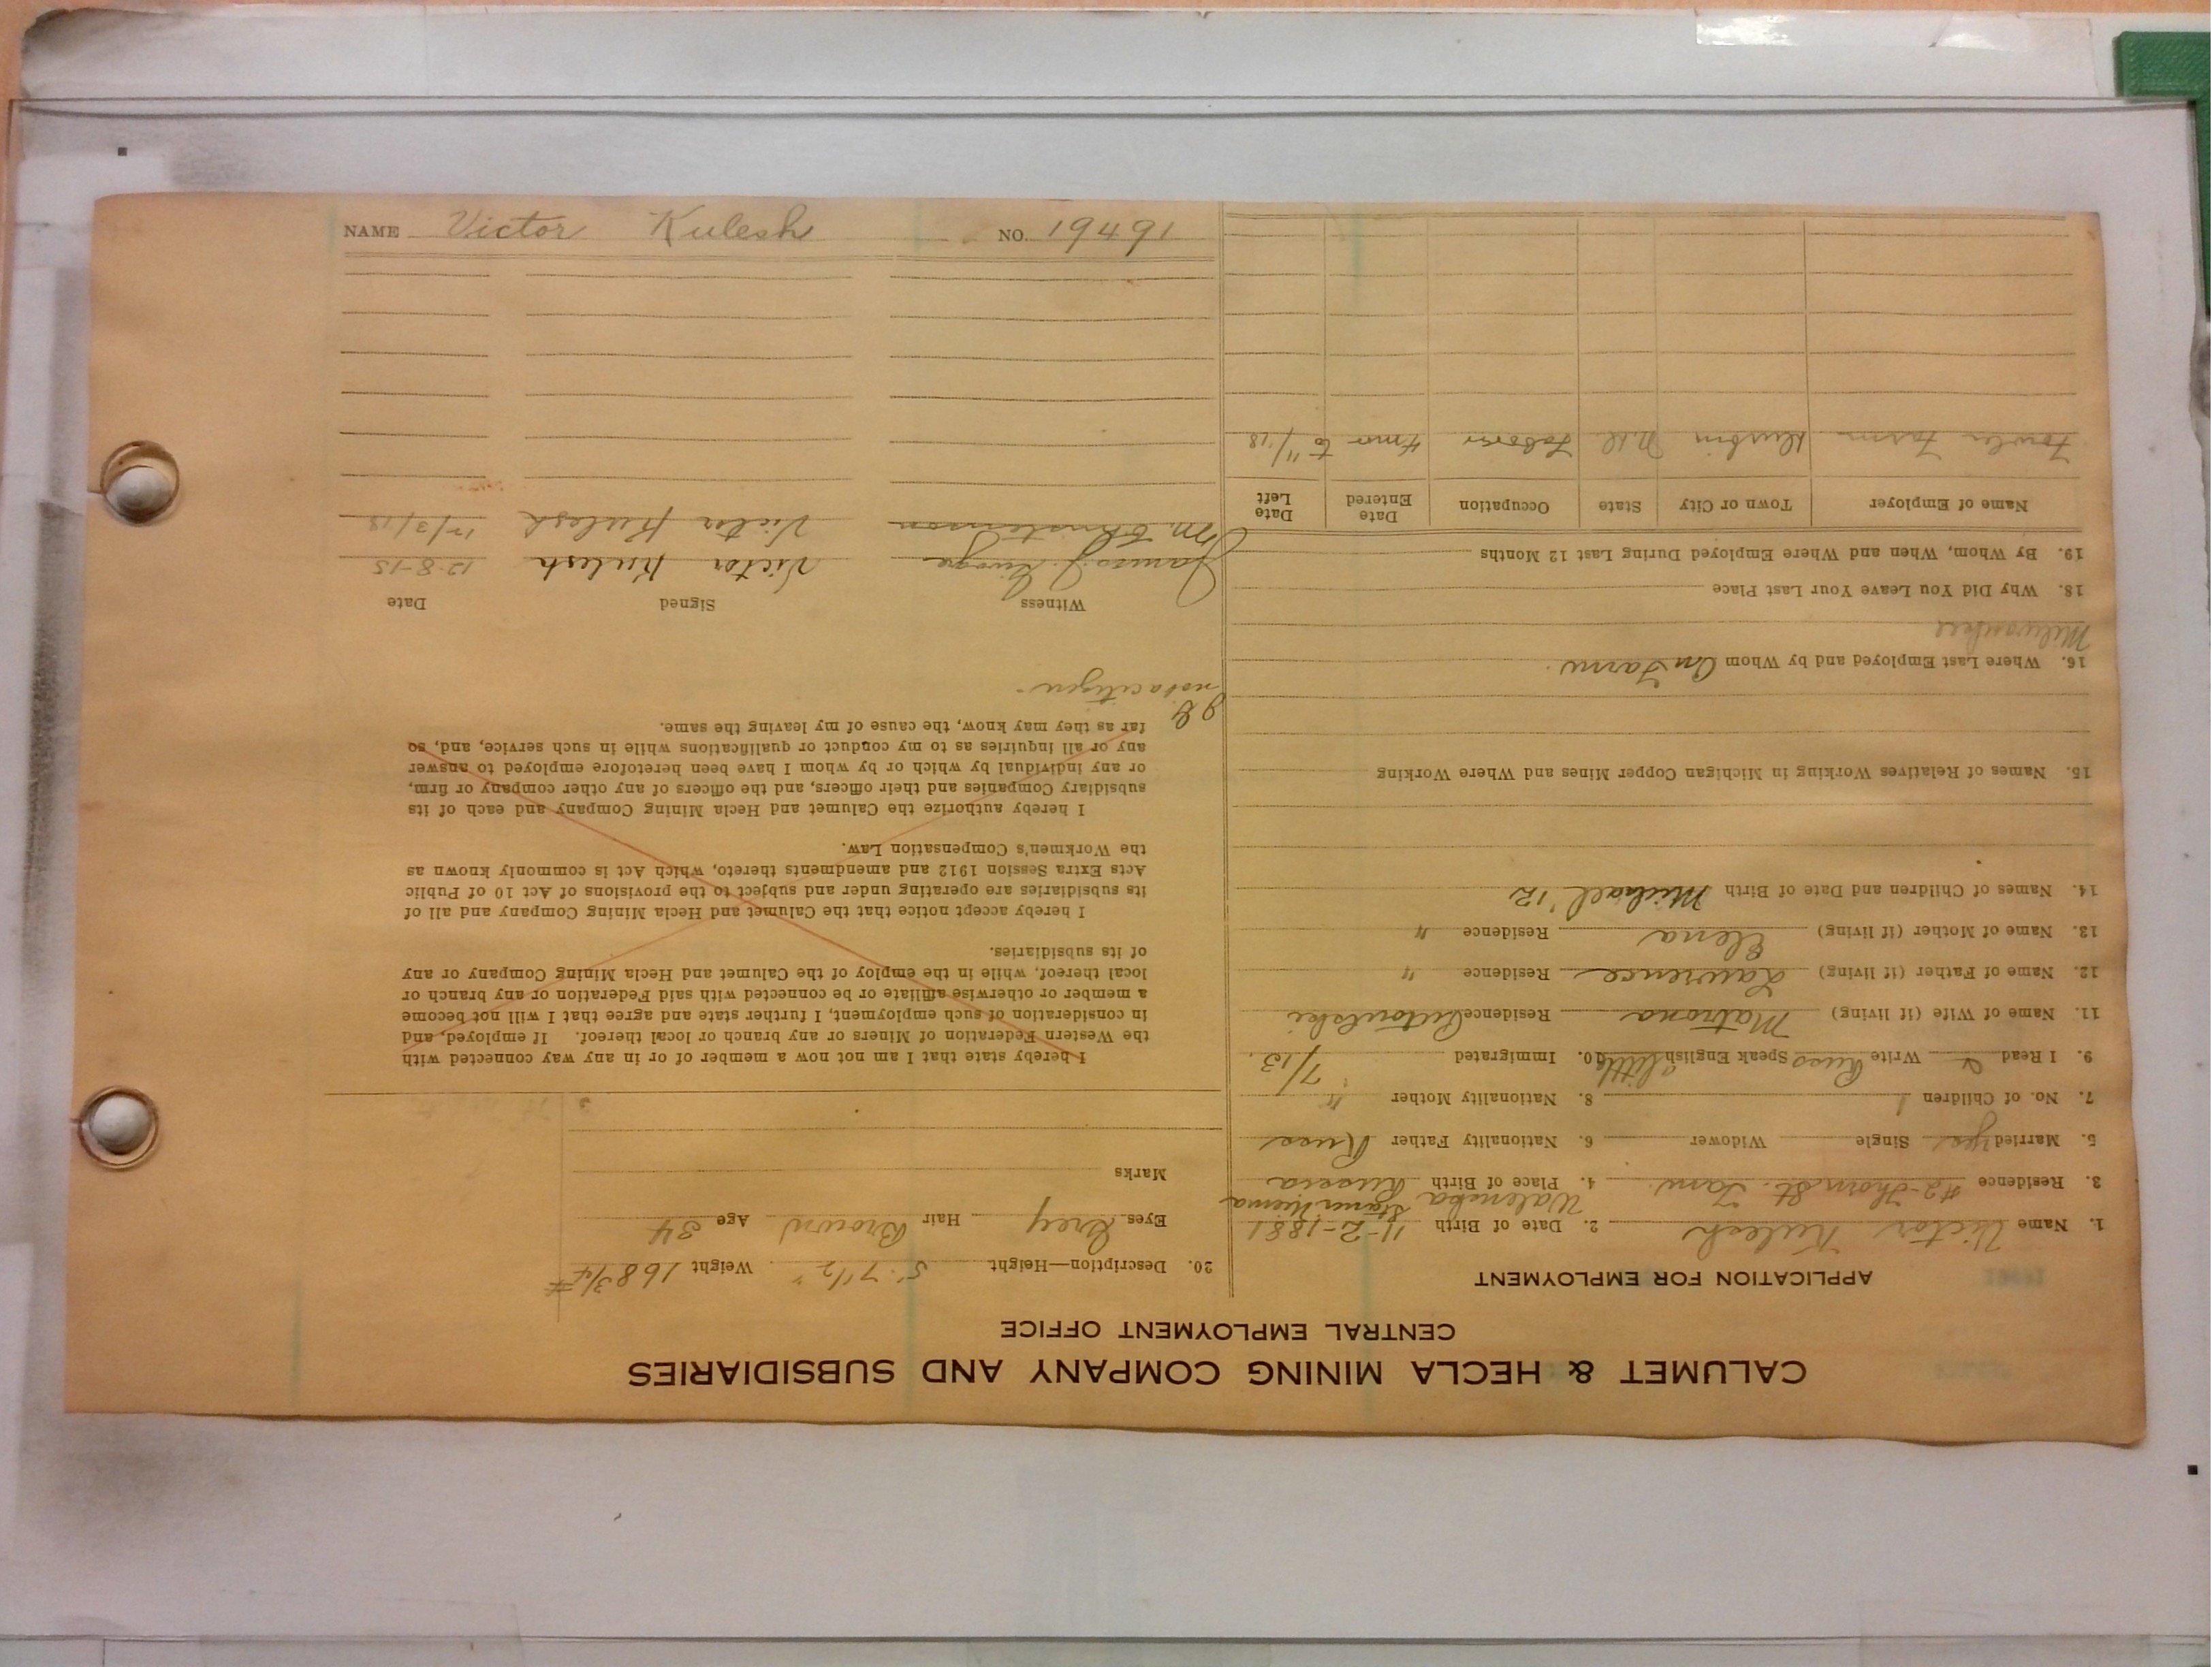 CALUMET & HECLA MINING COMPANY AND SUBSIDIARIES
CENTRAL EMPLOYMENT OFFICE
APPLICATION FOR EMPLOYMENT
1. Name Victor Kulesh 2. Date of Birth 11-2-1881
3. Residence #2-Thorn St. 4. Place of Birth Russia
5. Married yes Single Widower 6. Nationality Father Russ
7. No. of Children 1 8. Nationality Mother "
9. I Read & Write Russ Speak English a little 10. Immigrated 7/13.
11. Name of Wife (if living) Matrona Residence
12. Name of Father (if living) Lawrence Residence "
13. Name of Mother (if living) Elena Residence "
14. Names of Children and Date of Birth Michael '12
15. Names of Relatives Working in Michigan Copper Mines and Where Working
16. Where Last Employed and by Whom On Farm.
Milwaukee
18. Why Did You Leave Your Last Place
19. By Whom, When and Where Employed During Last 12 Months
Name of Employer Town or City State Occupation Date Entered Date Left
Fowler Farm Laborer 4 mos to 11/18
20. Description—Height 5' 7 1/2" Weight 168 3/4 #
Eyes Grey Hair Brown Age 34
Marks
I hereby state that I am not now a member of or in any way connected with
the Western Federation of Miners or any branch or local thereof. If employed, and
in consideration of such employment, I further state and agree that I will not become
a member or otherwise affiliate or be connected with said Federation or any branch or
local thereof, while in the employ of the Calumet and Hecla Mining Company or any
of its subsidiaries.
I hereby accept notice that the Calumet and Hecla Mining Company and all of
its subsidiaries are operating under and subject to the provisions of Act 10 of Public
Acts Extra Session 1912 and amendments thereto, which Act is commonly known as
the Workmen's Compensation Law.
I hereby authorize the Calumet and Hecla Mining Company and each of its
subsidiary Companies and their officers, and the officers of any other company or firm,
or any individual by which or by whom I have been heretofore employed to answer
any or all inquiries as to my conduct or qualifications while in such service, and, so
far as they may know, the cause of my leaving the same.
not a citizen.
Witness Signed Date
James J. Victor Kulesh 12-8-15
Victor Kulesh 12/3/18
NAME Victor Kulesh NO. 19491